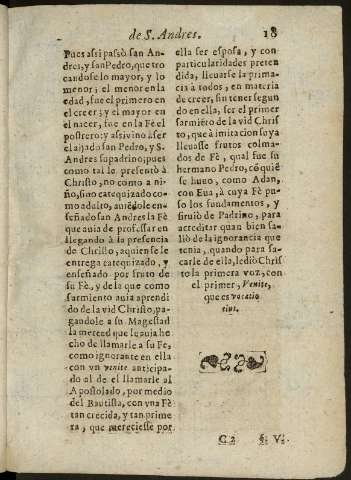 de S. Andres. 18
Pues assi passò san An-
dres, y san Pedro, que tro
candose lo mayor, y lo
menor; el menor en la
edad, fue el primero en
el creer; y el mayor en
el nacer, fue en la Fè el
postrero: y assi vino à ser
el aijado san Pedro, y S.
Andres su padrino; pues
como tal lo presentò à
Christo, no como a ni-
ño, sino catequizado co-
mo adulto, auiẽdole en-
señado san Andres la Fè
que auia de professar en
llegando à la presencia
de Christo, a quien se le
entrega catequizado, y
enseñado por fruto de
su Fè, y de la que como
sarmiento auia aprendi
do de la vid Christo, pa-
gandole a su Magestad
la merced que le auia he
cho de llamarle a su Fe,
como ignorante en ella
con vn venite anticipa-
do al de el llamarle al
Apostolado, por medio
del Bautista, con vna Fè
tan crecida, y tan prime
ra, que mereciesse por
ella ser esposa, y con
particularidades preten
didas, lleuarse la prima-
cia à todos, en materia
de creer, sin tener segun
do en ella, ser el primer
sarmiẽto de la vid Chris
to, que à imitacion suya
lleuasse frutos colma-
dos de Fè, qual fue su
hermano Pedro, cõ quiẽ
se huuo, como Adan,
con Eua, à cuya Fè pu-
so los fundamentos, y
siruiò de Padrino, para
acreditar quan bien sa-
liò de la ignorancia que
tenia, quando para sa-
carle de ella, le diò Chris
to la primera voz, con
el primer, Venite,
que es vocatio
eius.
C 2 §. V.